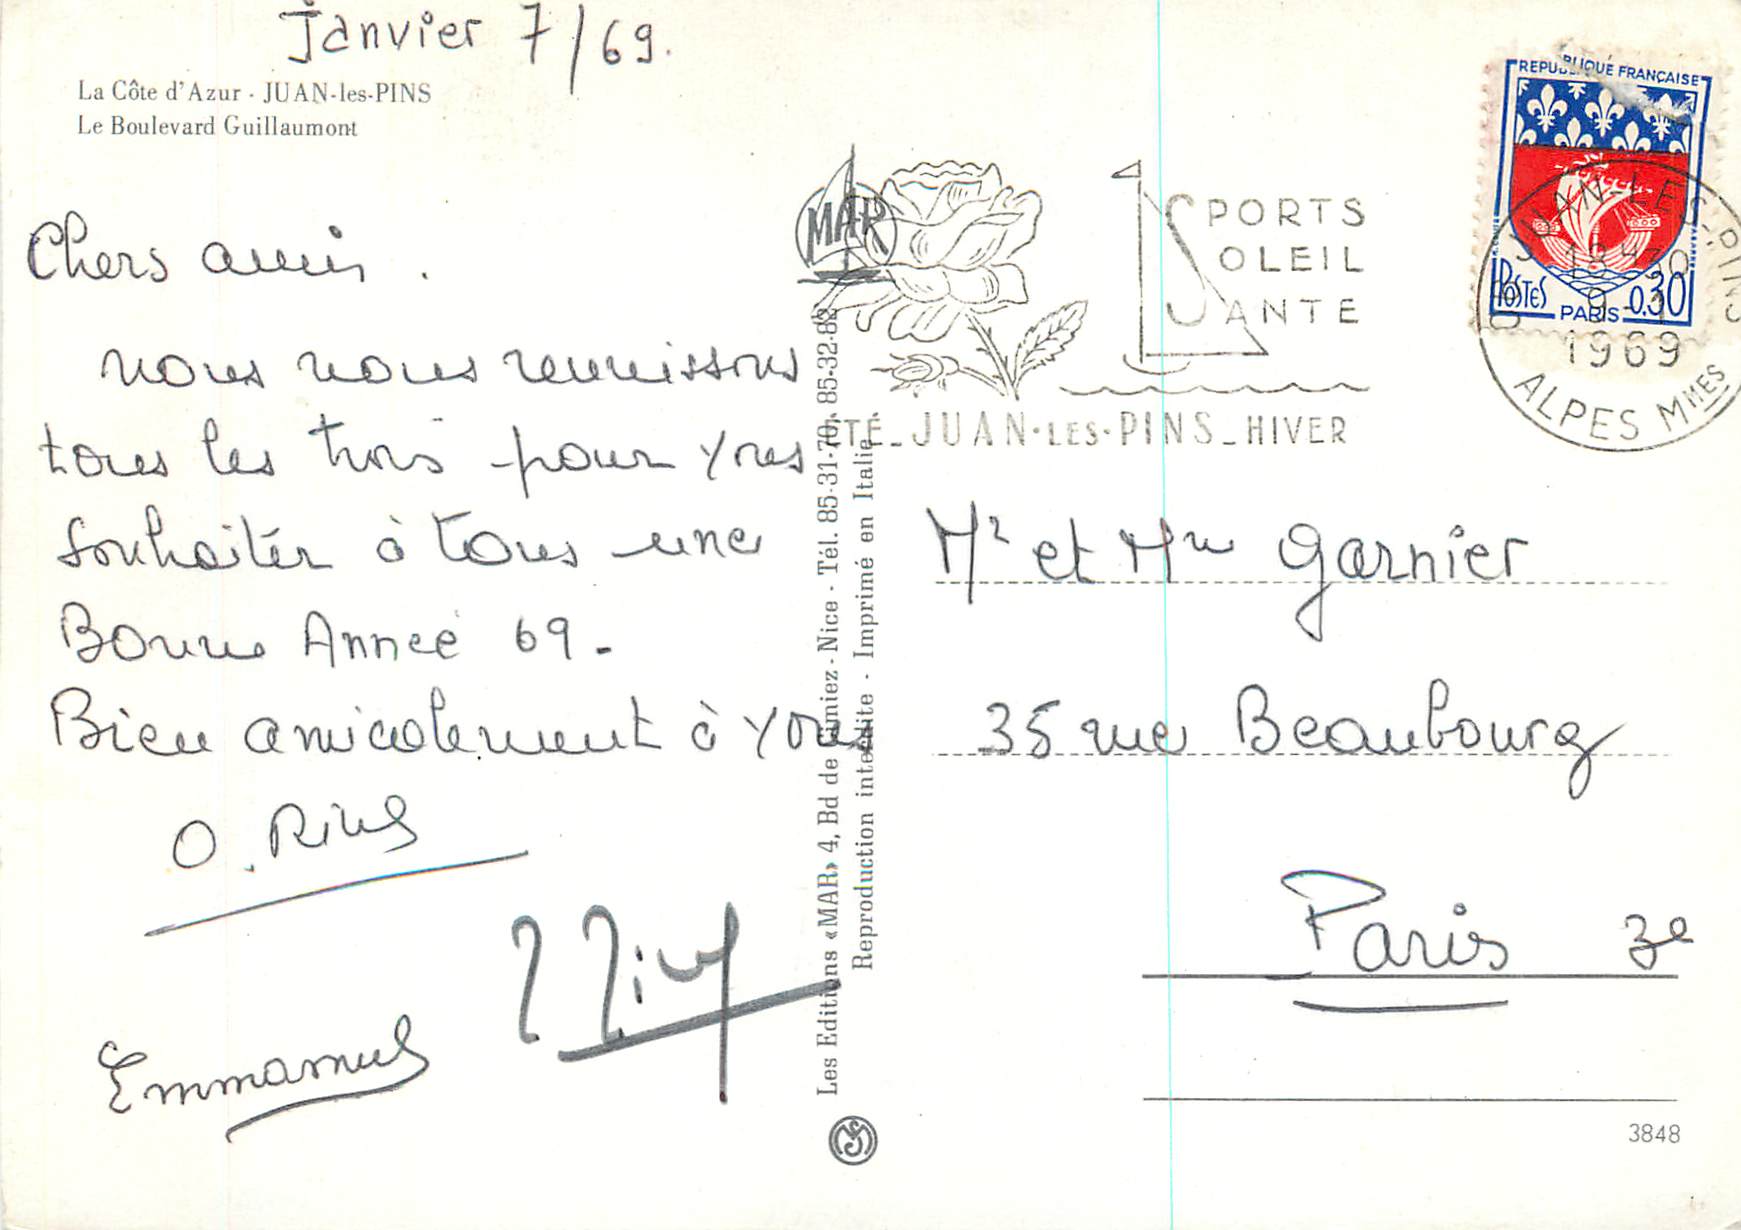 Janvier 7/69.
La Côte d'Azur - JUAN-les-PINS
Le Boulevard Guillaumont
Chers amis.
nous nous reunissons
tous les trois pour vous
souhaiter à tous une
Bonne Année 69-
Bien amicalement à vous
O.
Emmanuel
MAR
SPORTS
SOLEIL
SANTE
ÉTÉ_JUAN-LES-PINS_HIVER
REPUBLIQUE FRANÇAISE
POSTES
PARIS 0.30
JUAN-LES-PINS
1969
ALPES MMES
Les Editions «MAR» 4, Bd de - Nice - Tél. 85-31-70, 85-32-82
Reproduction interdite - Imprimé en Italie
Mr et Mme Garnier
35 rue Beaubourg
Paris 3e
3848